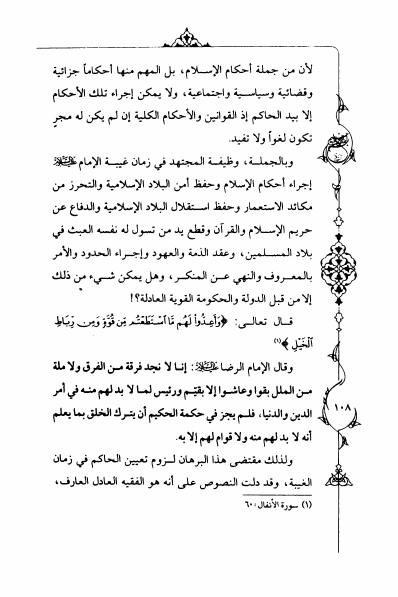 لأن من جملة أحكام الإسلام، بل المهم منها أحكاماً جزائية
وقضائية وسياسية واجتماعية، ولا يمكن إجراء تلك الأحكام
إلا بيد الحاكم إذ القوانين والأحكام الكلية إن لم يكن له مجرٍ
تكون لغواً ولا تفيد.
وبالجملة، وظيفة المجتهد في زمان غيبة الإمام
إجراء أحكام الإسلام وحفظ أمن البلاد الإسلامية والتحرز من
مكائد الاستعمار وحفظ استقلال البلاد الإسلامية والدفاع عن
حريم الإسلام والقرآن وقطع يد من تسول له نفسه العبث في
بلاد المسلمين، وعقد الذمة والعهود وإجراء الحدود والأمر
بالمعروف والنهي عن المنكر، وهل يمكن شيء من ذلك
إلا من قبل الدولة والحكومة القوية العادلة؟!
قال تعالى: ﴿وَأَعِدُّواْ لَهُم مَّا ٱسْتَطَعْتُم مِّن قُوَّةٍ وَمِن رِّبَاطِ
ٱلْخَيْلِ﴾(١)
وقال الإمام الرضا: إنا لا نجد فرقة من الفرق ولا ملة
من الملل بقوا وعاشوا إلا بقيّم ورئيس لما لا بد لهم منه في أمر
الدين والدنيا، فلم يجز في حكمة الحكيم أن يترك الخلق بما يعلم
أنه لا بد لهم منه ولا قوام لهم إلا به.
ولذلك مقتضى هذا البرهان لزوم تعيين الحاكم في زمان
الغيبة، وقد دلت النصوص على أنه هو الفقيه العادل العارف،
(١) سورة الأنفال: ٦٠
١٠٨